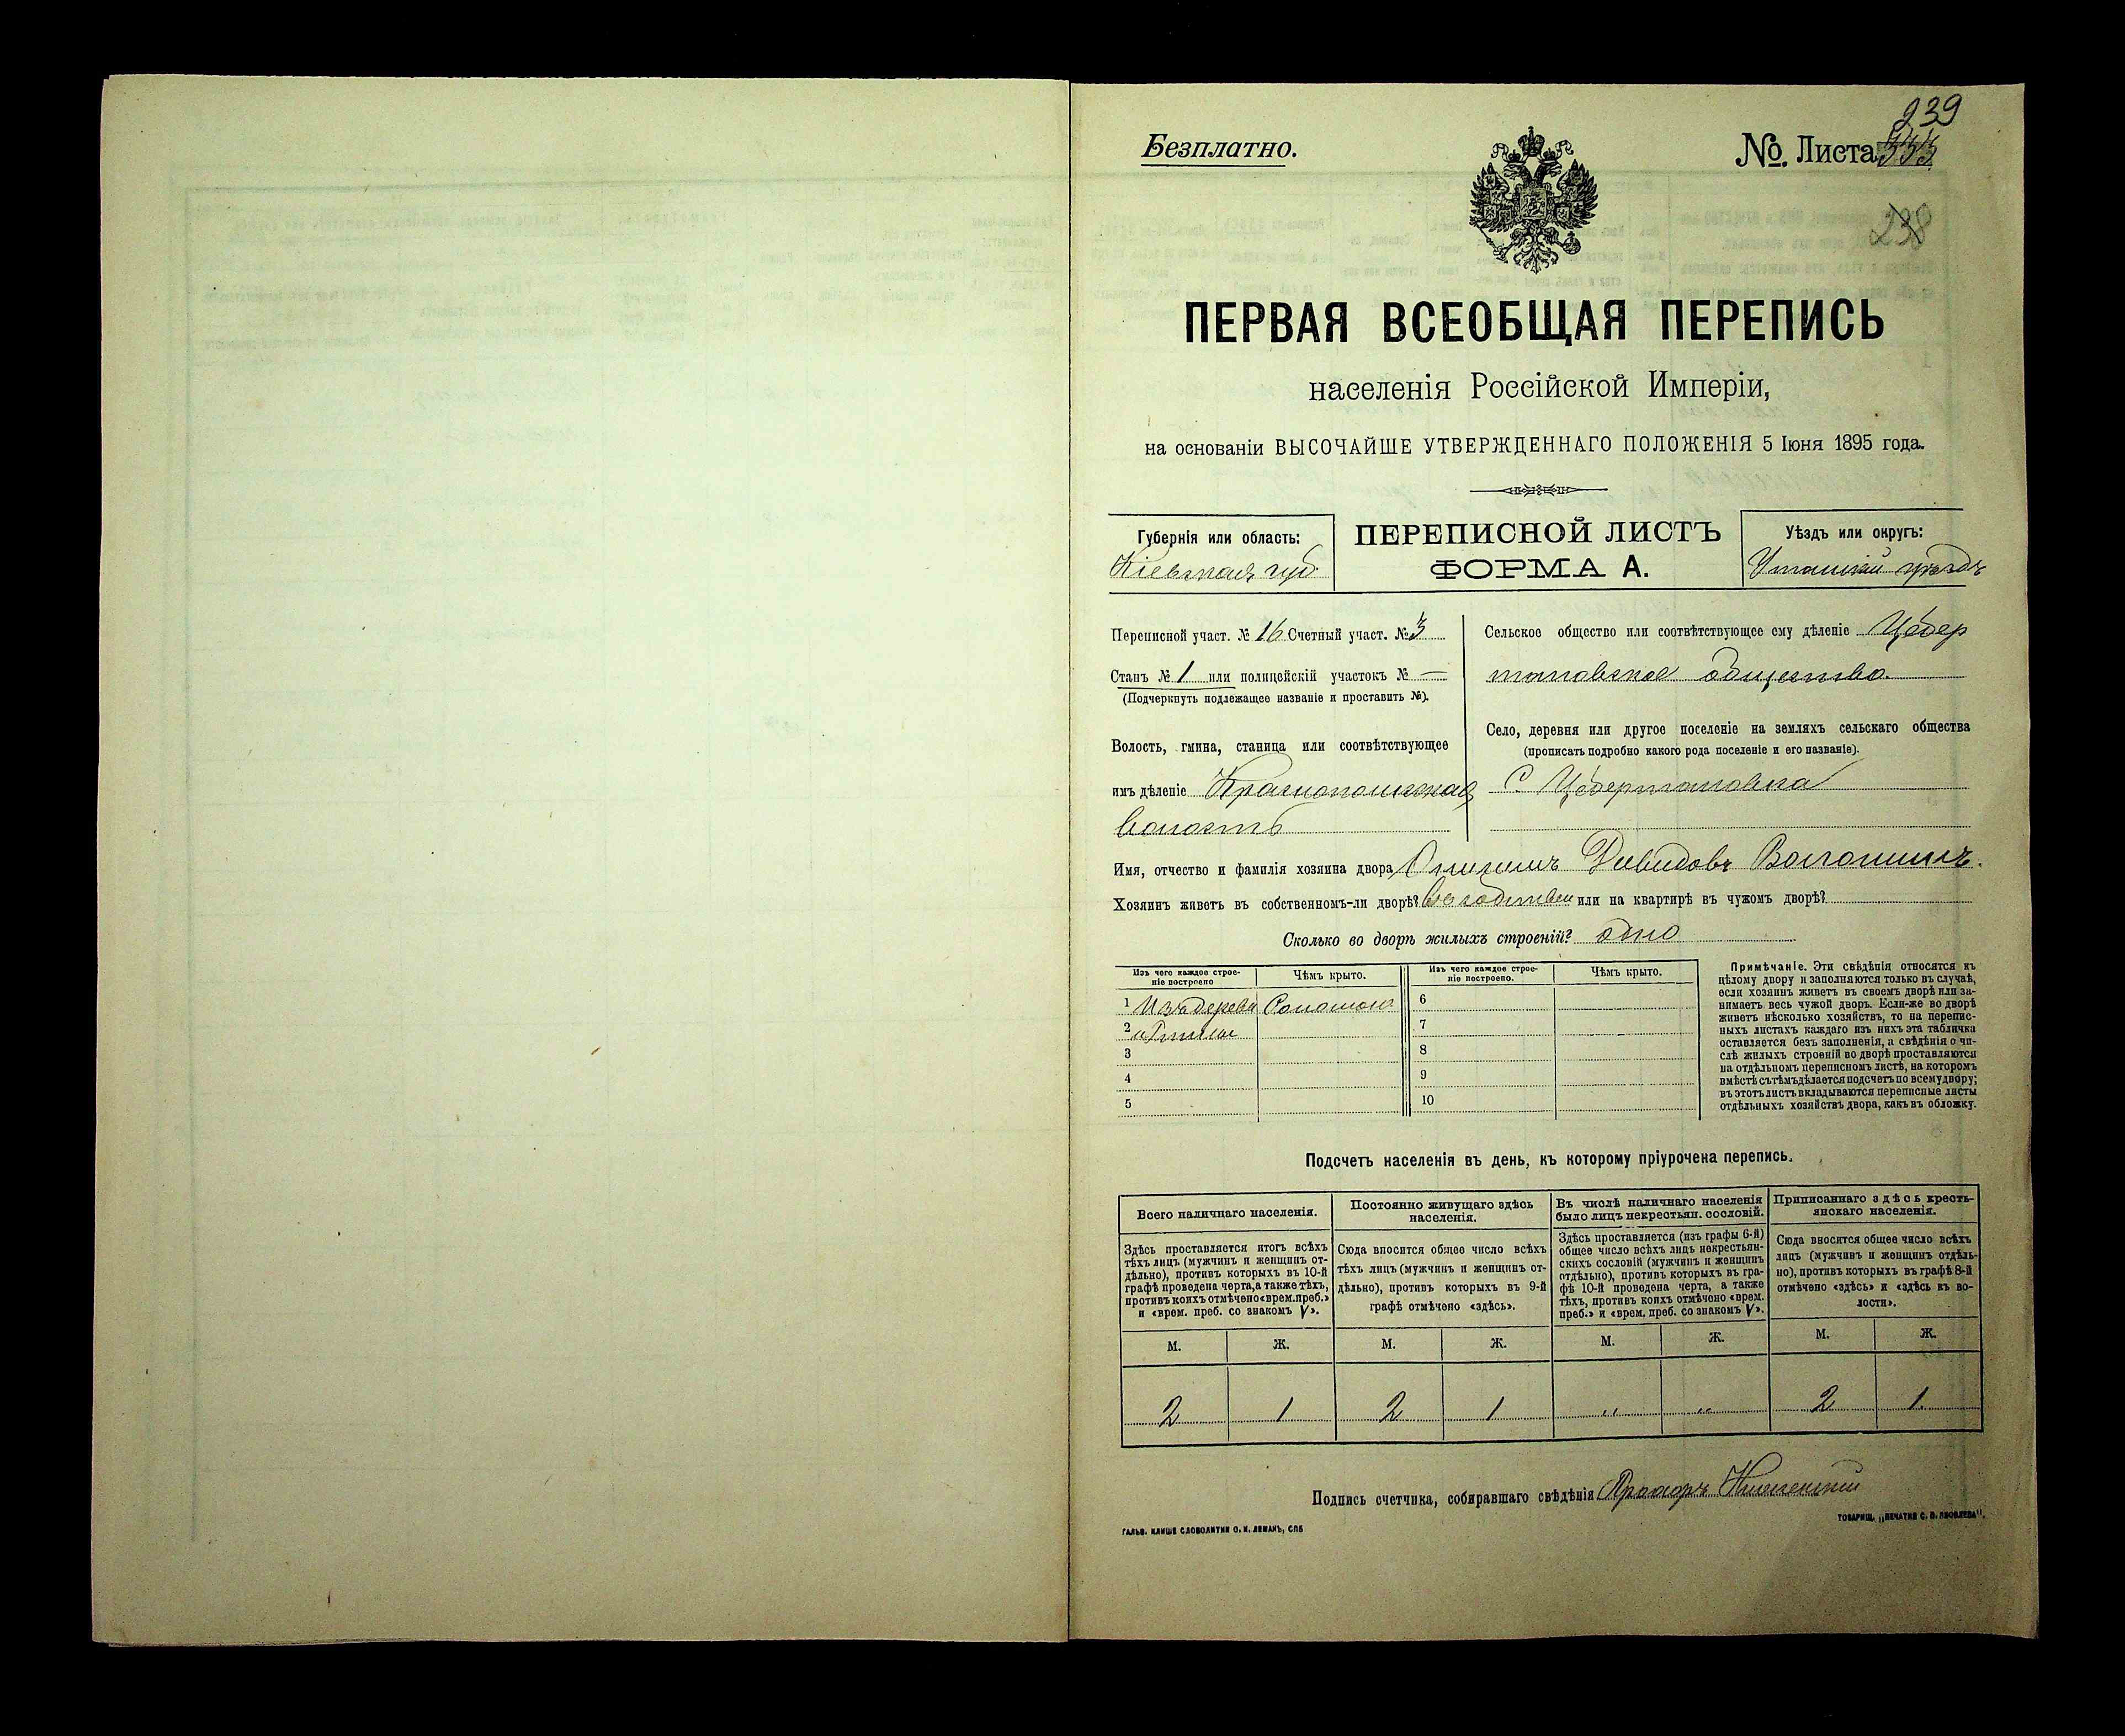 239
Безплатно.
№. Листа
238
ПЕРВАЯ ВСЕОБЩАЯ ПЕРЕПИСЬ
населенія Россійской Имперіи,
на основаніи ВЫСОЧАЙШЕ УТВЕРЖДЕННАГО ПОЛОЖЕНІЯ 5 Іюня 1895 года.
Губернія или область:
Кіевская губ.
ПЕРЕПИСНОЙ ЛИСТЪ
ФОРМА А.
Уѣздъ или округъ:
Уманскій уѣздъ
Переписной участ. № 16 Счетный участ. № 3
Станъ № 1 или полицейскій участокъ № —
(Подчеркнуть подлежащее названіе и проставить №).
Волость, гмина, станица или соотвѣтствующее
имъ дѣленіе Краснопольская
волость
Сельское общество или соотвѣтствующее ему дѣленіе Цебер
мановское общество.
Село, деревня или другое поселеніе на земляхъ сельскаго общества
(прописать подробно какого рода поселеніе и его названіе).
С Цебермановка
Имя, отчество и фамилія хозяина двора Давидовъ Волошинъ.
Хозяинъ живетъ въ собственномъ-ли дворѣ? или на квартирѣ въ чужомъ дворѣ?
Сколько во дворѣ жилыхъ строеній? одно
Изъ чего каждое строе-
ніе построено
Чѣмъ крыто.
Изъ чего каждое строе-
ніе построено.
Чѣмъ крыто.
1 Изъ дерева Соломою 6
2 и глины 7
3 8
4 9
5 10
Примѣчаніе. Эти свѣдѣнія относятся къ
цѣлому двору и заполняются только въ случаѣ,
если хозяинъ живетъ въ своемъ дворѣ или за-
нимаетъ весь чужой дворъ. Если-же во дворѣ
живетъ нѣсколько хозяйствъ, то на перепис-
ныхъ листахъ каждаго изъ нихъ эта табличка
оставляется безъ заполненія, а свѣдѣнія о чи-
слѣ жилыхъ строеній во дворѣ проставляются
на отдѣльномъ переписномъ листѣ, на которомъ
вмѣстѣ съ тѣмъ дѣлается подсчетъ по всему двору;
въ этотъ листъ вкладываются переписные листы
отдѣльныхъ хозяйствъ двора, какъ въ обложку.
Подсчетъ населенія въ день, къ которому пріурочена перепись.
Всего наличнаго населенія.
Постоянно живущаго здѣсь
населенія.
Въ числѣ наличнаго населенія
было лицъ некрестьян. сословій.
Приписаннаго здѣсь кресть-
янскаго населенія.
Здѣсь проставляется итогъ всѣхъ
тѣхъ лицъ (мужчинъ и женщинъ от-
дѣльно), противъ которыхъ въ 10-й
графѣ проведена черта, а также тѣхъ,
противъ коихъ отмѣчено «врем. преб.»
и «врем. преб. со знакомъ V».
Сюда вносится общее число всѣхъ
тѣхъ лицъ (мужчинъ и женщинъ от-
дѣльно), противъ которыхъ въ 9-й
графѣ отмѣчено «здѣсь».
Здѣсь проставляется (изъ графы 6-й)
общее число всѣхъ лицъ некрестьян-
скихъ сословій (мужчинъ и женщинъ
отдѣльно), противъ которыхъ въ гра-
фѣ 10-й проведена черта, а также
тѣхъ, противъ коихъ отмѣчено «врем.
преб.» и «врем. преб. со знакомъ V».
Сюда вносится общее число всѣхъ
лицъ (мужчинъ и женщинъ отдѣль-
но), противъ которыхъ въ графѣ 8-й
отмѣчено «здѣсь» и «здѣсь къ во-
лости».
М. Ж. М. Ж. М. Ж. М. Ж.
2 1 2 1 " " 2 1
Подпись счетчика, собиравшаго свѣдѣнія Прохоръ
ГАЛЬВ. КЛИШЕ СЛОВОЛИТНИ О. И. ЛЕМАНЪ, СПБ
ТОВАРИЩ. „ПЕЧАТНЯ С. П. ЯКОВЛЕВА".